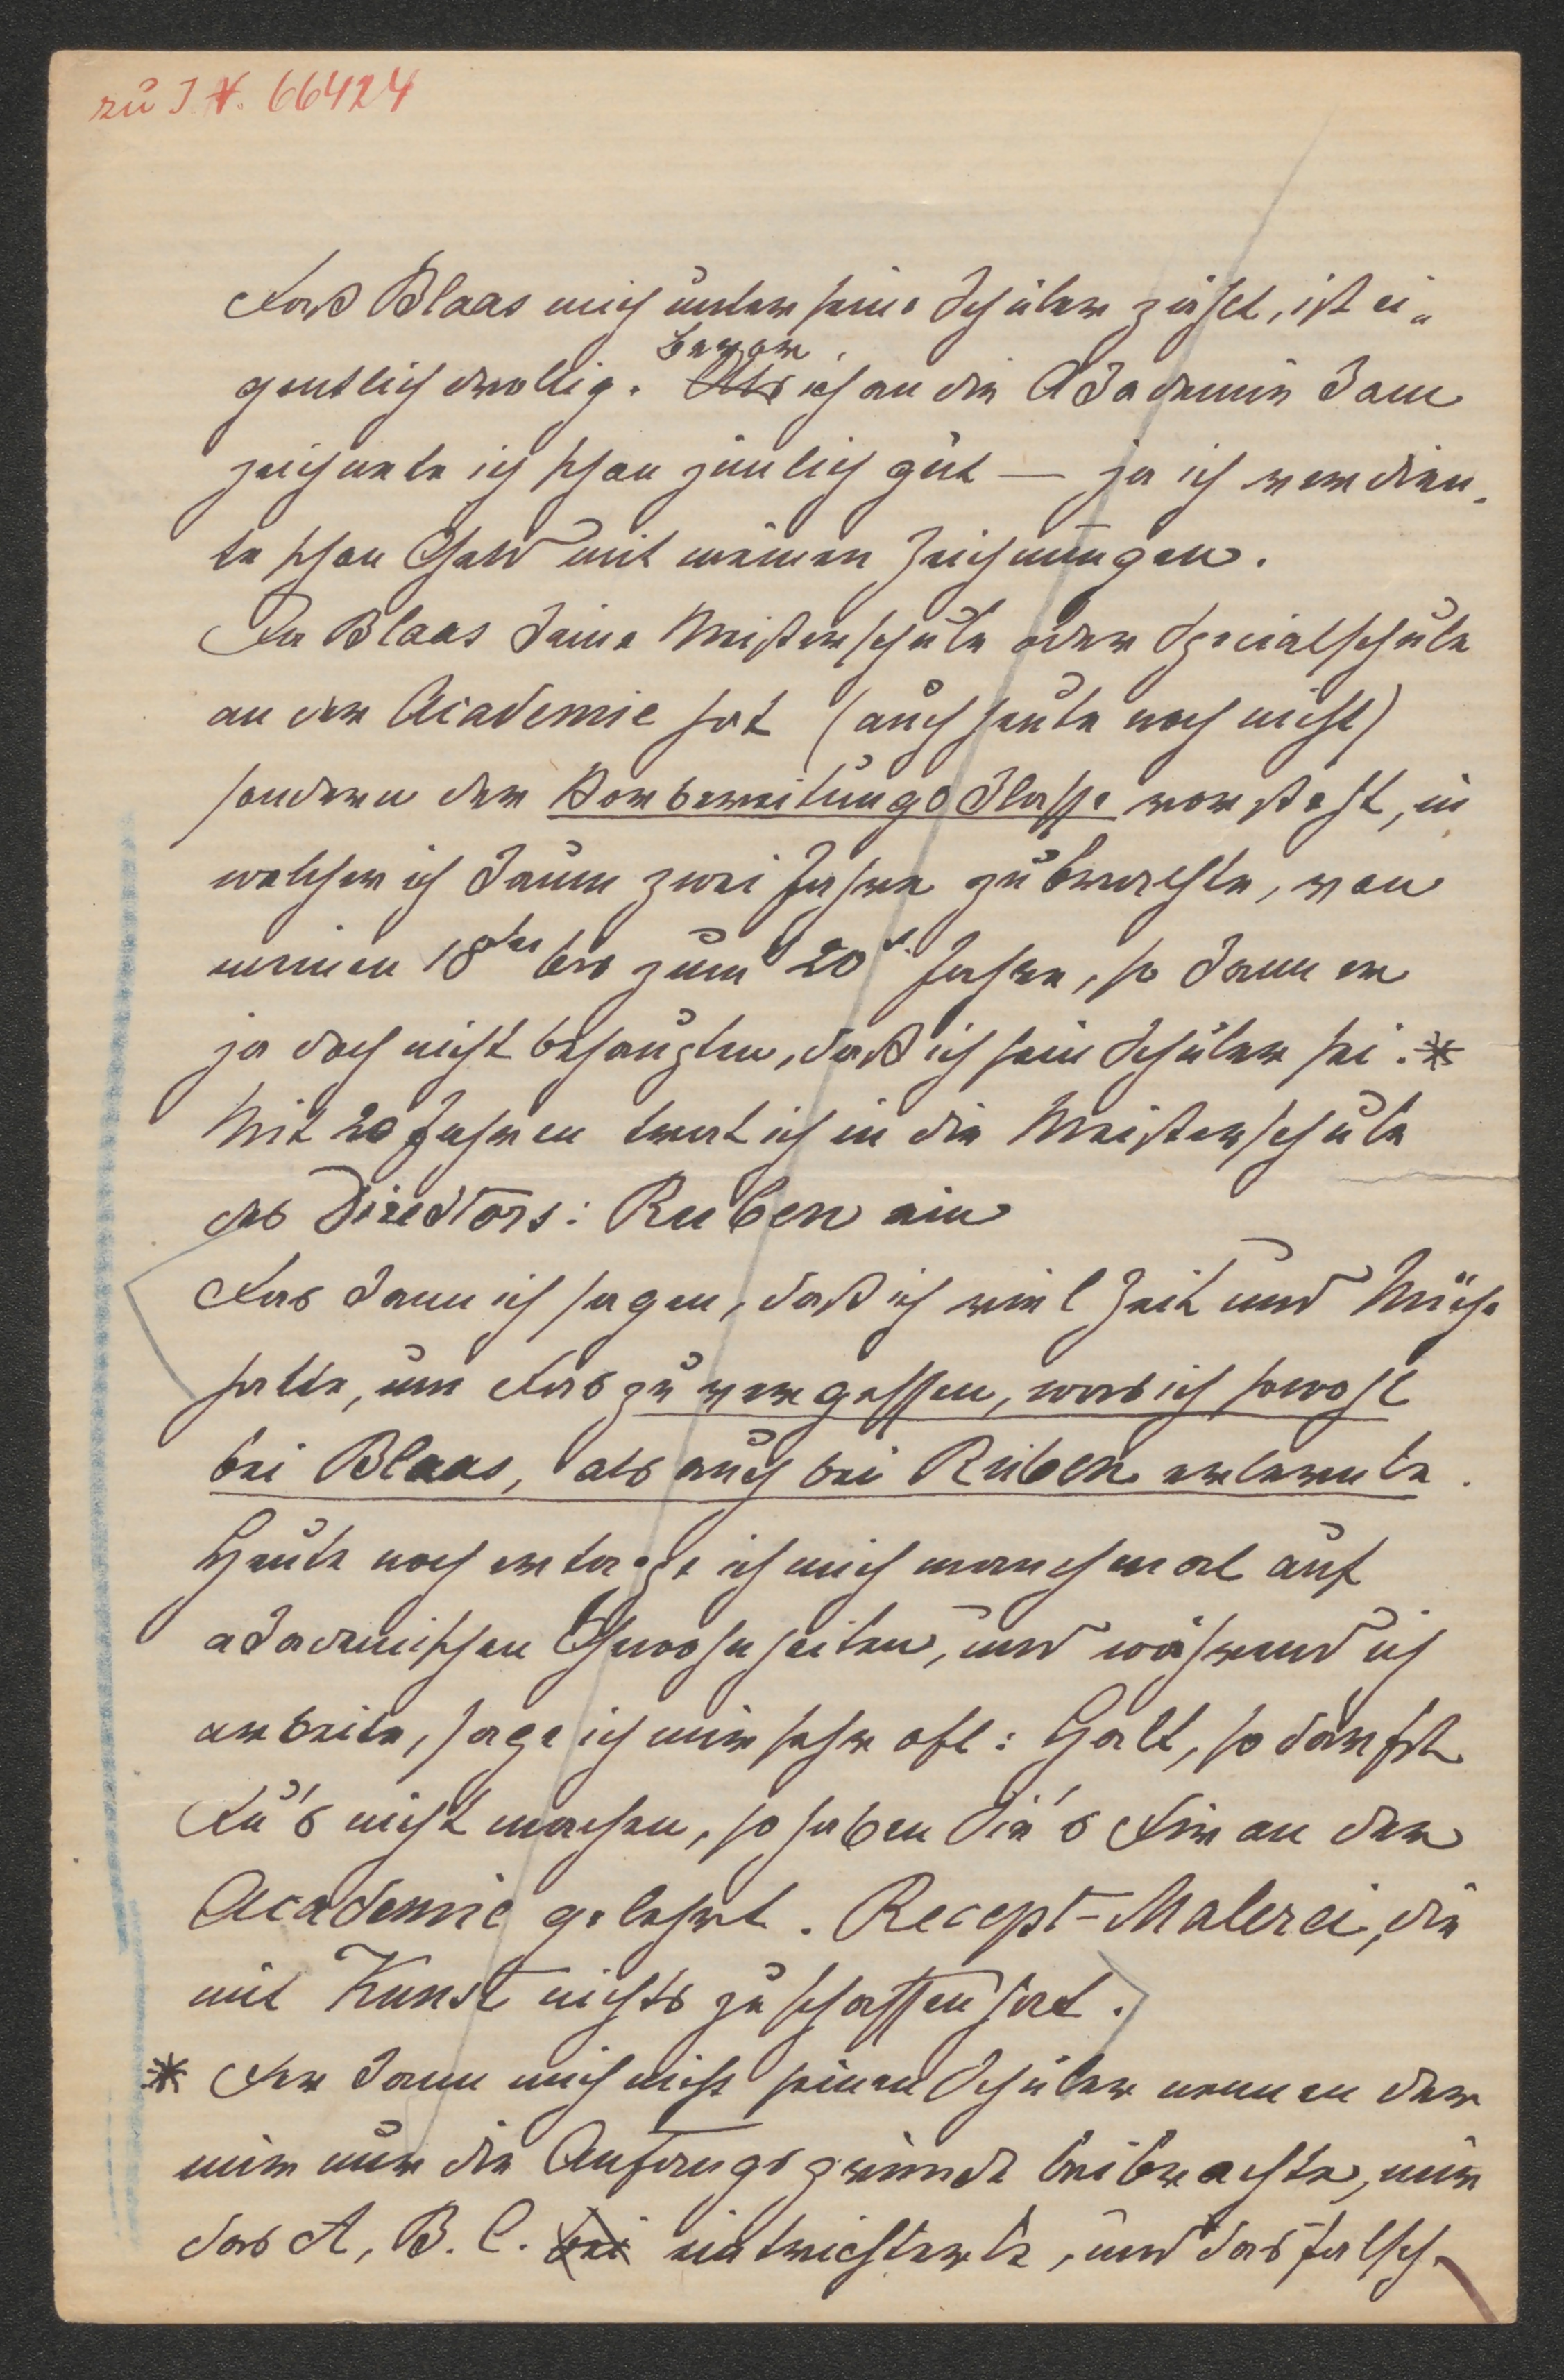 zu I N. 66424
Daß Blaas mich unter seine Schüler zählt, ist ei„
bevor
gentlich drollig. Als ich an die Akademie kam
zeichnete ich schon zimlich gut — ja ich verdien„
te schon Geld mit meinen Zeichnungen.
Da Blaas keine Meisterschule oder Specialschule
an der Academie hat (auch heute noch nicht)
sondern der Vorbereitungsklasse vorsteht, in
welcher ich kaum zwei Jahre zubrachte, von
meinem 18ten bis zum 20t. Jahre, so kann er
ja doch nicht behaupten, daß ich sein Schüler sei. *
Mit 20 Jahren trat ich in die Meisterschule
des Direktors: Ruben ein
Das kann ich sagen, daß ich viel Zeit und Mühe
hatte, um Das zu vergessen, was ich sowohl
bei Blaas, als auch bei Ruben erlernte.
Heute noch ertappe ich mich manchmal auf
akademischen Gewohnheiten, und während ich
arbeite, sage ich mir sehr oft: Halt, so darfst
Du's nicht machen, so haben Sie's Dir an der
Academie gelehrt. Recept-Malerei, die
mit Kunst nichts zu schaffen hat.
* Der kann mich nicht seinen Schüler nennen der
mir nur die Anfangsgründe beibrachte, mir
das A, B. C. bei eintrichterte, und das falsch